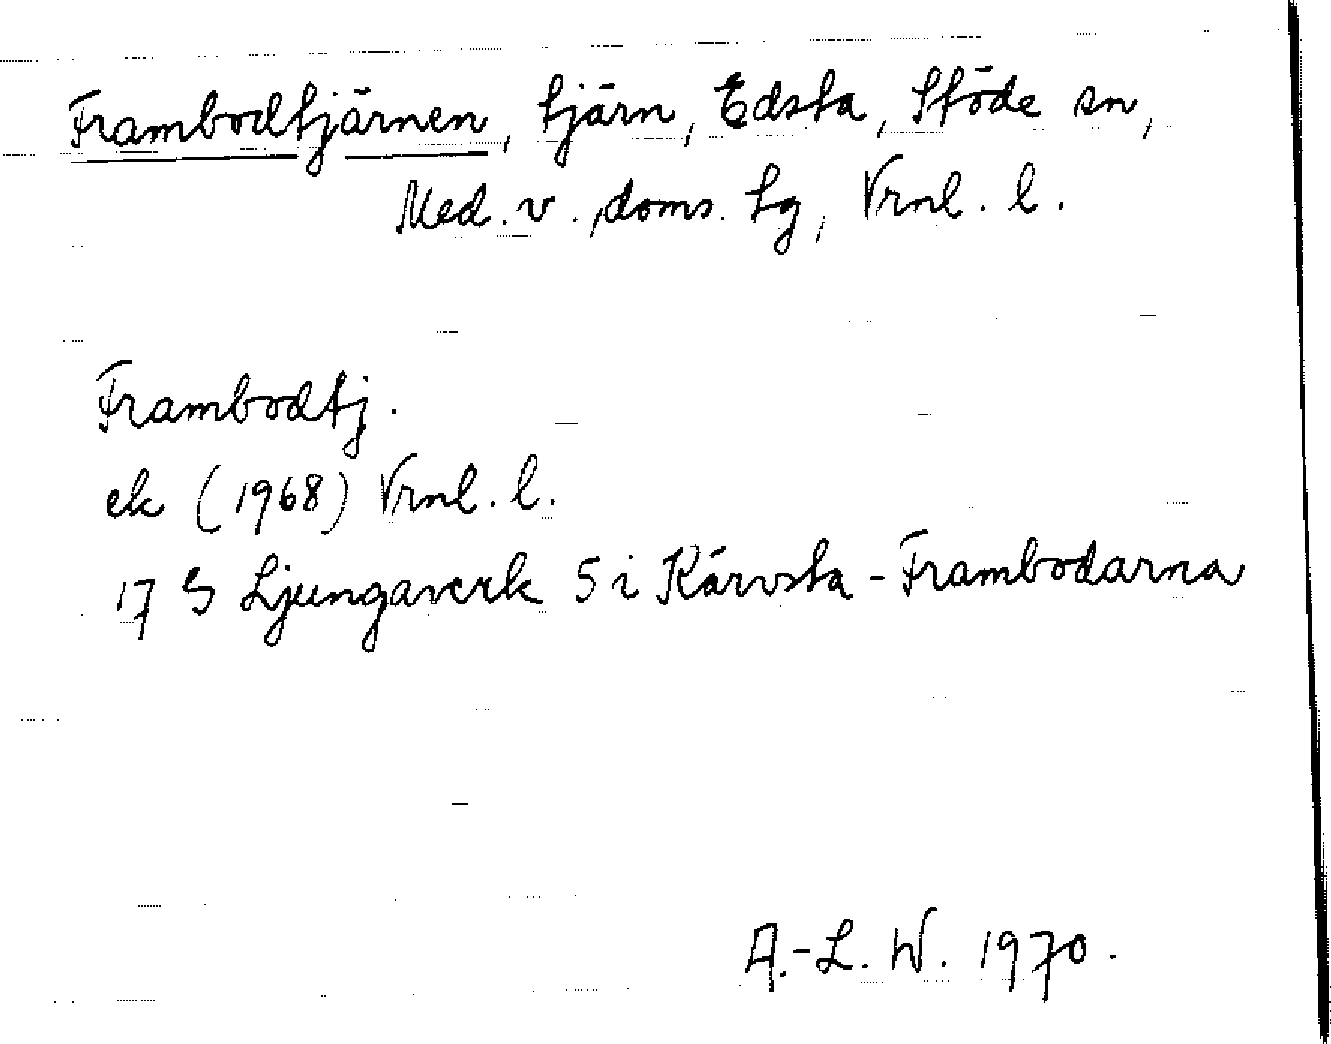 Frambodtjärnen, tjärn, Edsta, Stöde sn,
Med. v., doms. tg, Vrnl. l.
Frambodtj.
ek (1968) Vrnl. l.
17 G Ljungaverk 5 i Kärvsta - Frambodarna
A.-L. W. 1970.